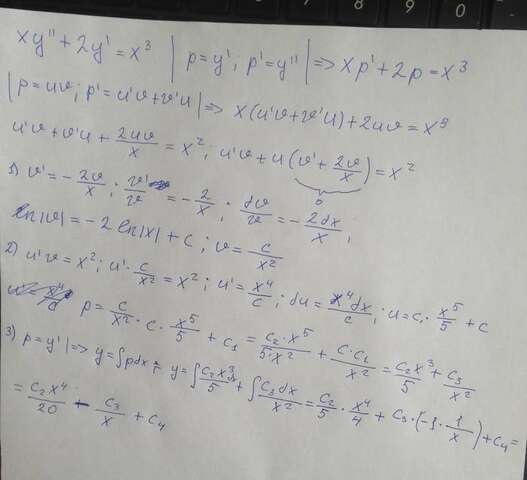 8 9 0
xy'' + 2y' = x³ | p = y'; p' = y'' | => xp' + 2p = x³
|p = uv; p' = u'v + v'u| => x(u'v + v'u) + 2uv = x³
u'v + v'u + 2uv/x = x²; u'v + u(v' + 2v/x) = x²
0
1) v' = -2v/x; v'/v = -2/x; dv/v = -2dx/x;
ln|v| = -2 ln|x| + c; v = c/x²
2) u'v = x²; u'·c/x² = x²; u' = x⁴/c; du = x⁴dx/c; u = c₁·x⁵/5 + c
p = c/x²·c·x⁵/5 + c₁ = c₂·x⁵/5·x² + c·c₁/x² = c₂x³/5 + c₃/x²
3) p = y' | => y = ∫pdx; y = ∫c₂x³/5 + ∫c₃dx/x² = c₂/5·x⁴/4 + c₃·(-1·1/x) + c₄ =
= c₂x⁴/20 - c₃/x + c₄